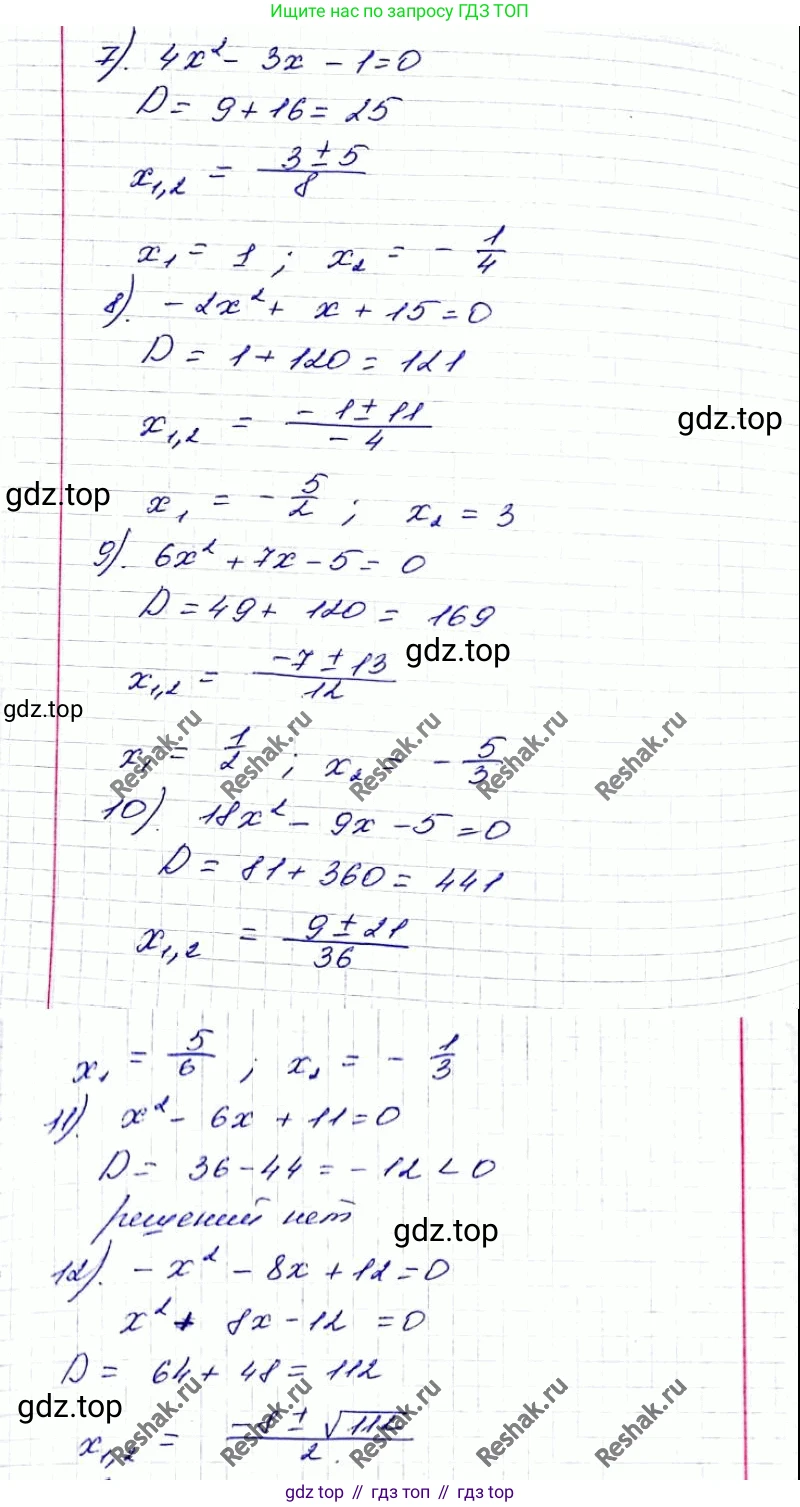 Ищите нас по запросу ГДЗ ТОП
7). 4x² - 3x - 1 = 0
D = 9 + 16 = 25
x₁,₂ = (3 ± 5)/8
x₁ = 1 ; x₂ = - 1/4
8). - 2x² + x + 15 = 0
D = 1 + 120 = 121
gdz.top
x₁,₂ = (- 1 ± 11)/(- 4)
gdz.top
x₁ = - 5/2 ; x₂ = 3
9). 6x² + 7x - 5 = 0
D = 49 + 120 = 169
gdz.top
x₁,₂ = (-7 ± 13)/12
gdz.top
x₁ = 1/2 ; x₂ = - 5/3
Reshak.ru Reshak.ru Reshak.ru Reshak.ru Reshak.ru
10). 18x² - 9x - 5 = 0
D = 81 + 360 = 441
x₁,₂ = (9 ± 21)/36
x₁ = 5/6 ; x₂ = - 1/3
11). x² - 6x + 11 = 0
D = 36 - 44 = - 12 < 0
решений нет
gdz.top
12). - x² - 8x + 12 = 0
x² + 8x - 12 = 0
D = 64 + 48 = 112
gdz.top
x₁,₂ = (-8 ± √112)/2
Reshak.ru Reshak.ru Reshak.ru Reshak.ru Reshak.ru
gdz top // гдз топ // гдз top